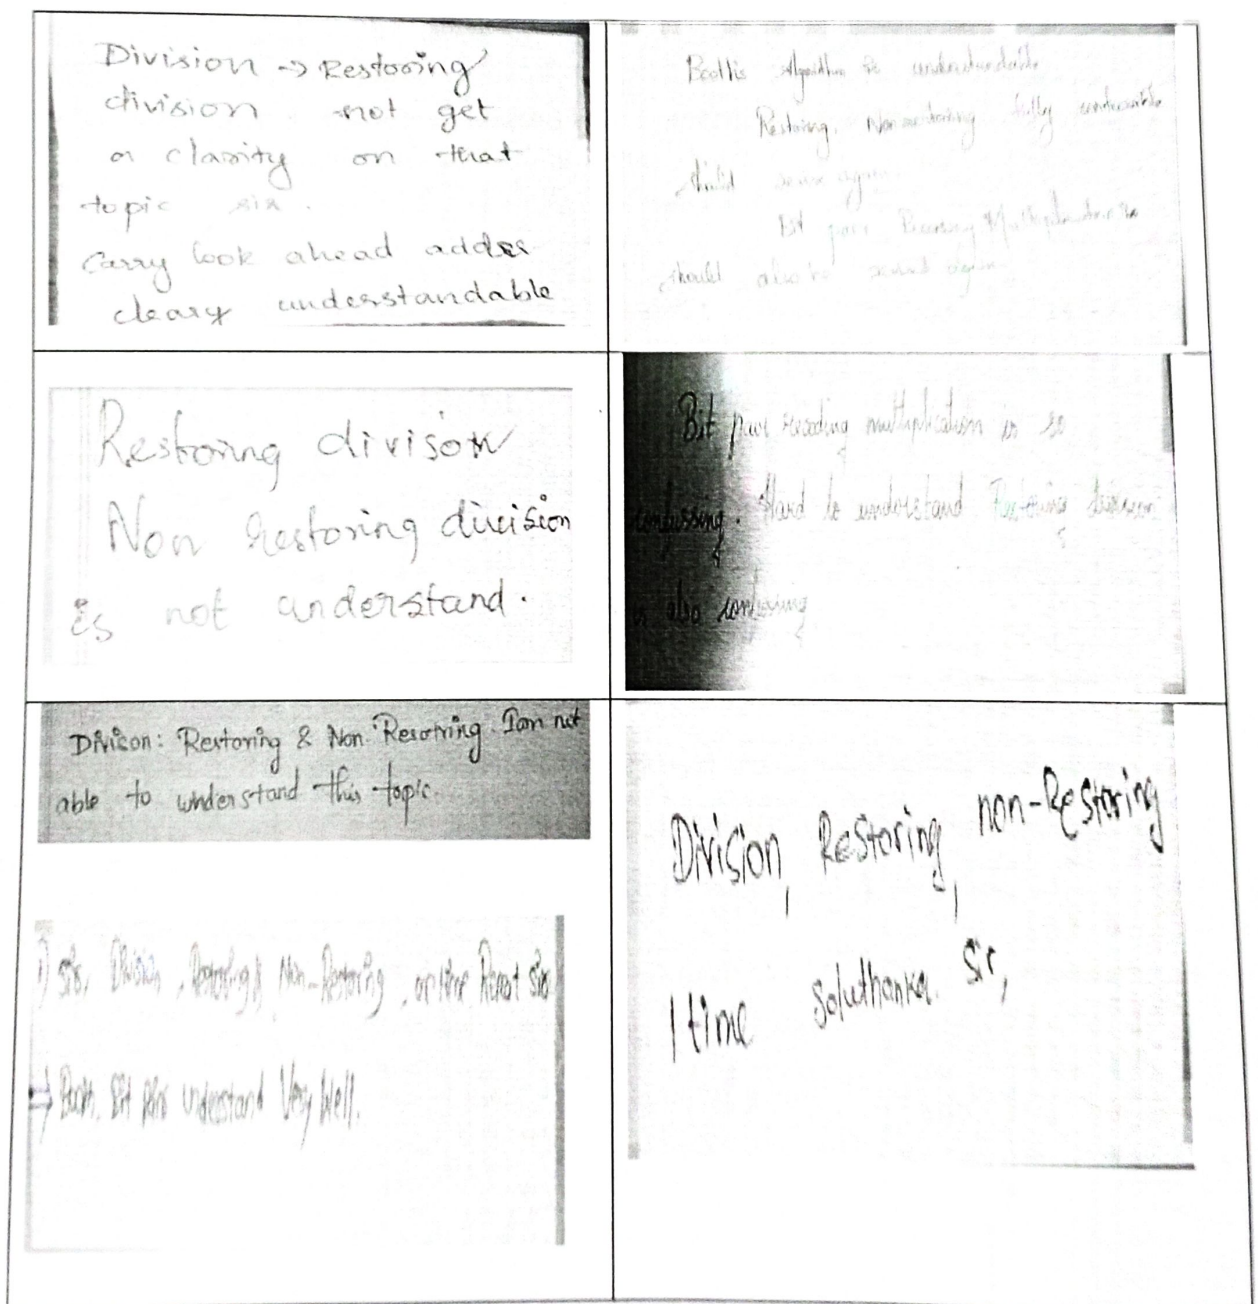 Division → Restoring
division not get
a clarity on that
topic sir.
Carry look ahead adder
cleary understandable
Booth's Algorithm is understandable
Restoring, Non restoring fully
should again
Bit pair Multiplication is
should also be again
Restoring divison
Non Restoring division
is not understand.
Bit pair recoding multiplication is so
confussing. Hard to understand Restoring division
is also confusing
Divison: Restoring & Non. Resotring. I am not
able to understand this topic.
Sir, Division, Restoring & Non-Restoring, one time Repeat Sir
Booth, Bit pair understand Very Well.
Division, Restoring, non-Restoring
1 time Sir,